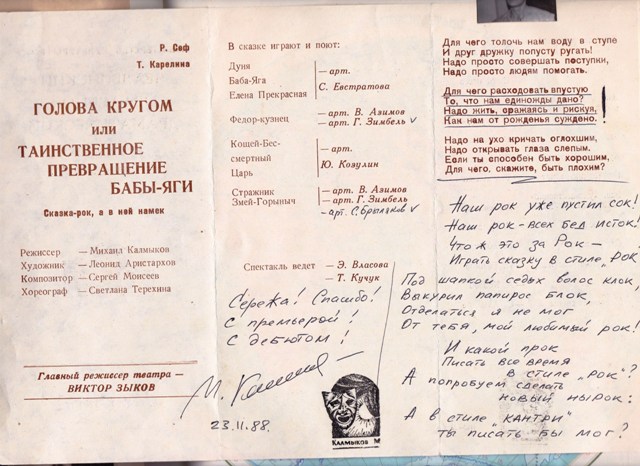 Р. Сеф
Т. Карелина
ГОЛОВА КРУГОМ
ИЛИ
ТАИНСТВЕННОЕ
ПРЕВРАЩЕНИЕ
БАБЫ-ЯГИ
Сказка-рок, а в ней намек
Режиссер — Михаил Калмыков
Художник — Леонид Аристархов
Композитор — Сергей Моисеев
Хореограф — Светлана Терехина
Главный режиссер театра —
ВИКТОР ЗЫКОВ
В сказке играют и поют:
Дуня
Баба-Яга — арт.
Елена Прекрасная С. Евстратова
Федор-кузнец — арт. В. Азимов
— арт. Г. Зимбель
Кощей-Бес-
смертный — арт.
Царь Ю. Козулин
Стражник — арт. В. Азимов
Змей-Горыныч — арт. Г. Зимбель
— арт. С. Брюляков
Спектакль ведет — Э. Власова
— Т. Кучук
Сережа! Спасибо!
С премьерой!
С дебютом!
23.11.88.
КАЛМЫКОВ М
Для чего толочь нам воду в ступе
И друг дружку попусту ругать!
Надо просто совершать поступки,
Надо просто людям помогать.
Для чего расходовать впустую
То, что нам единожды дано?
Надо жить, сражаясь и рискуя,
Как нам от рожденья суждено. !
Надо на ухо кричать оглохшим,
Надо открывать глаза слепым.
Если ты способен быть хорошим,
Для чего, скажите, быть плохим?
Наш рок уже пустил сок!
Наш рок - всех бед исток!
Что ж это за Рок —
Играть сказку в стиле „РОК
Под шапкой седых волос клок,
Выкурил папирос блок,
Отделаться я не мог
От тебя, мой любимый рок!
И какой прок
Писать все время
в стиле „рок"?
А попробуем сделать
новый нырок:
А в стиле „КАНТРИ"
ты писать бы мог?